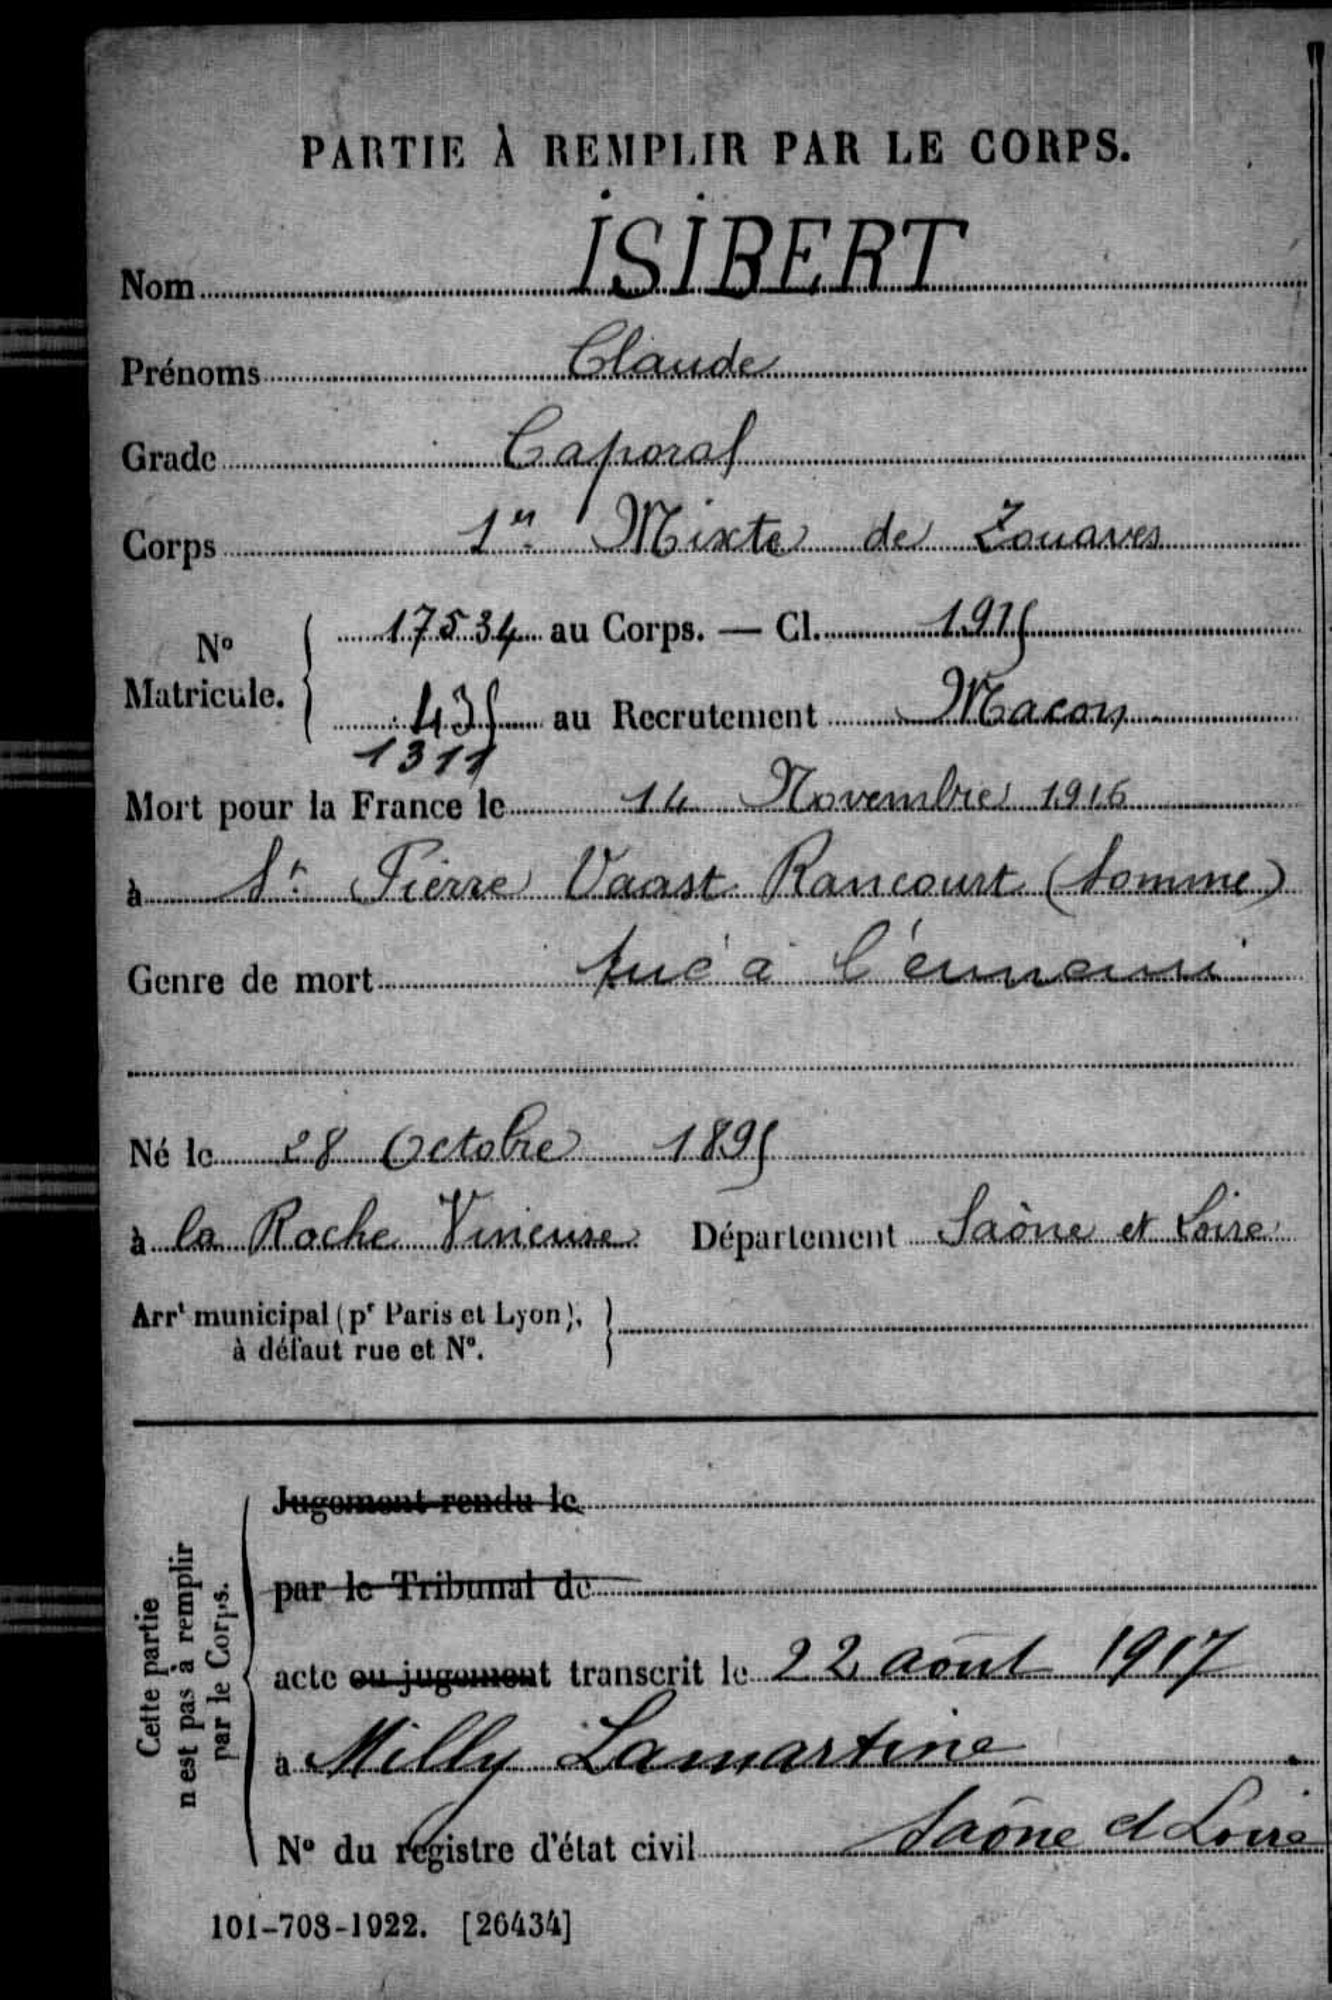 PARTIE À REMPLIR PAR LE CORPS.
Nom ISIBERT
Prénoms Claude
Grade Caporal
Corps 1er Mixte de Zouaves
No Matricule. 17534 au Corps. — Cl. 1915
435 au Recrutement Macon
1311
Mort pour la France le 14 Novembre 1916
à St Pierre Vaast Rancourt (Somme)
Genre de mort tué à l'ennemi
Né le 28 Octobre 1895
à la Roche Vineuse Département Saône et Loire
Arrt municipal (pr Paris et Lyon),
à défaut rue et No.
Cette partie
n'est pas à remplir
par le Corps.
Jugement rendu le
par le Tribunal de
acte ou jugement transcrit le 22 août 1917
à Milly Lamartine
No du registre d'état civil Saône et Loire
101-708-1922. [26434]